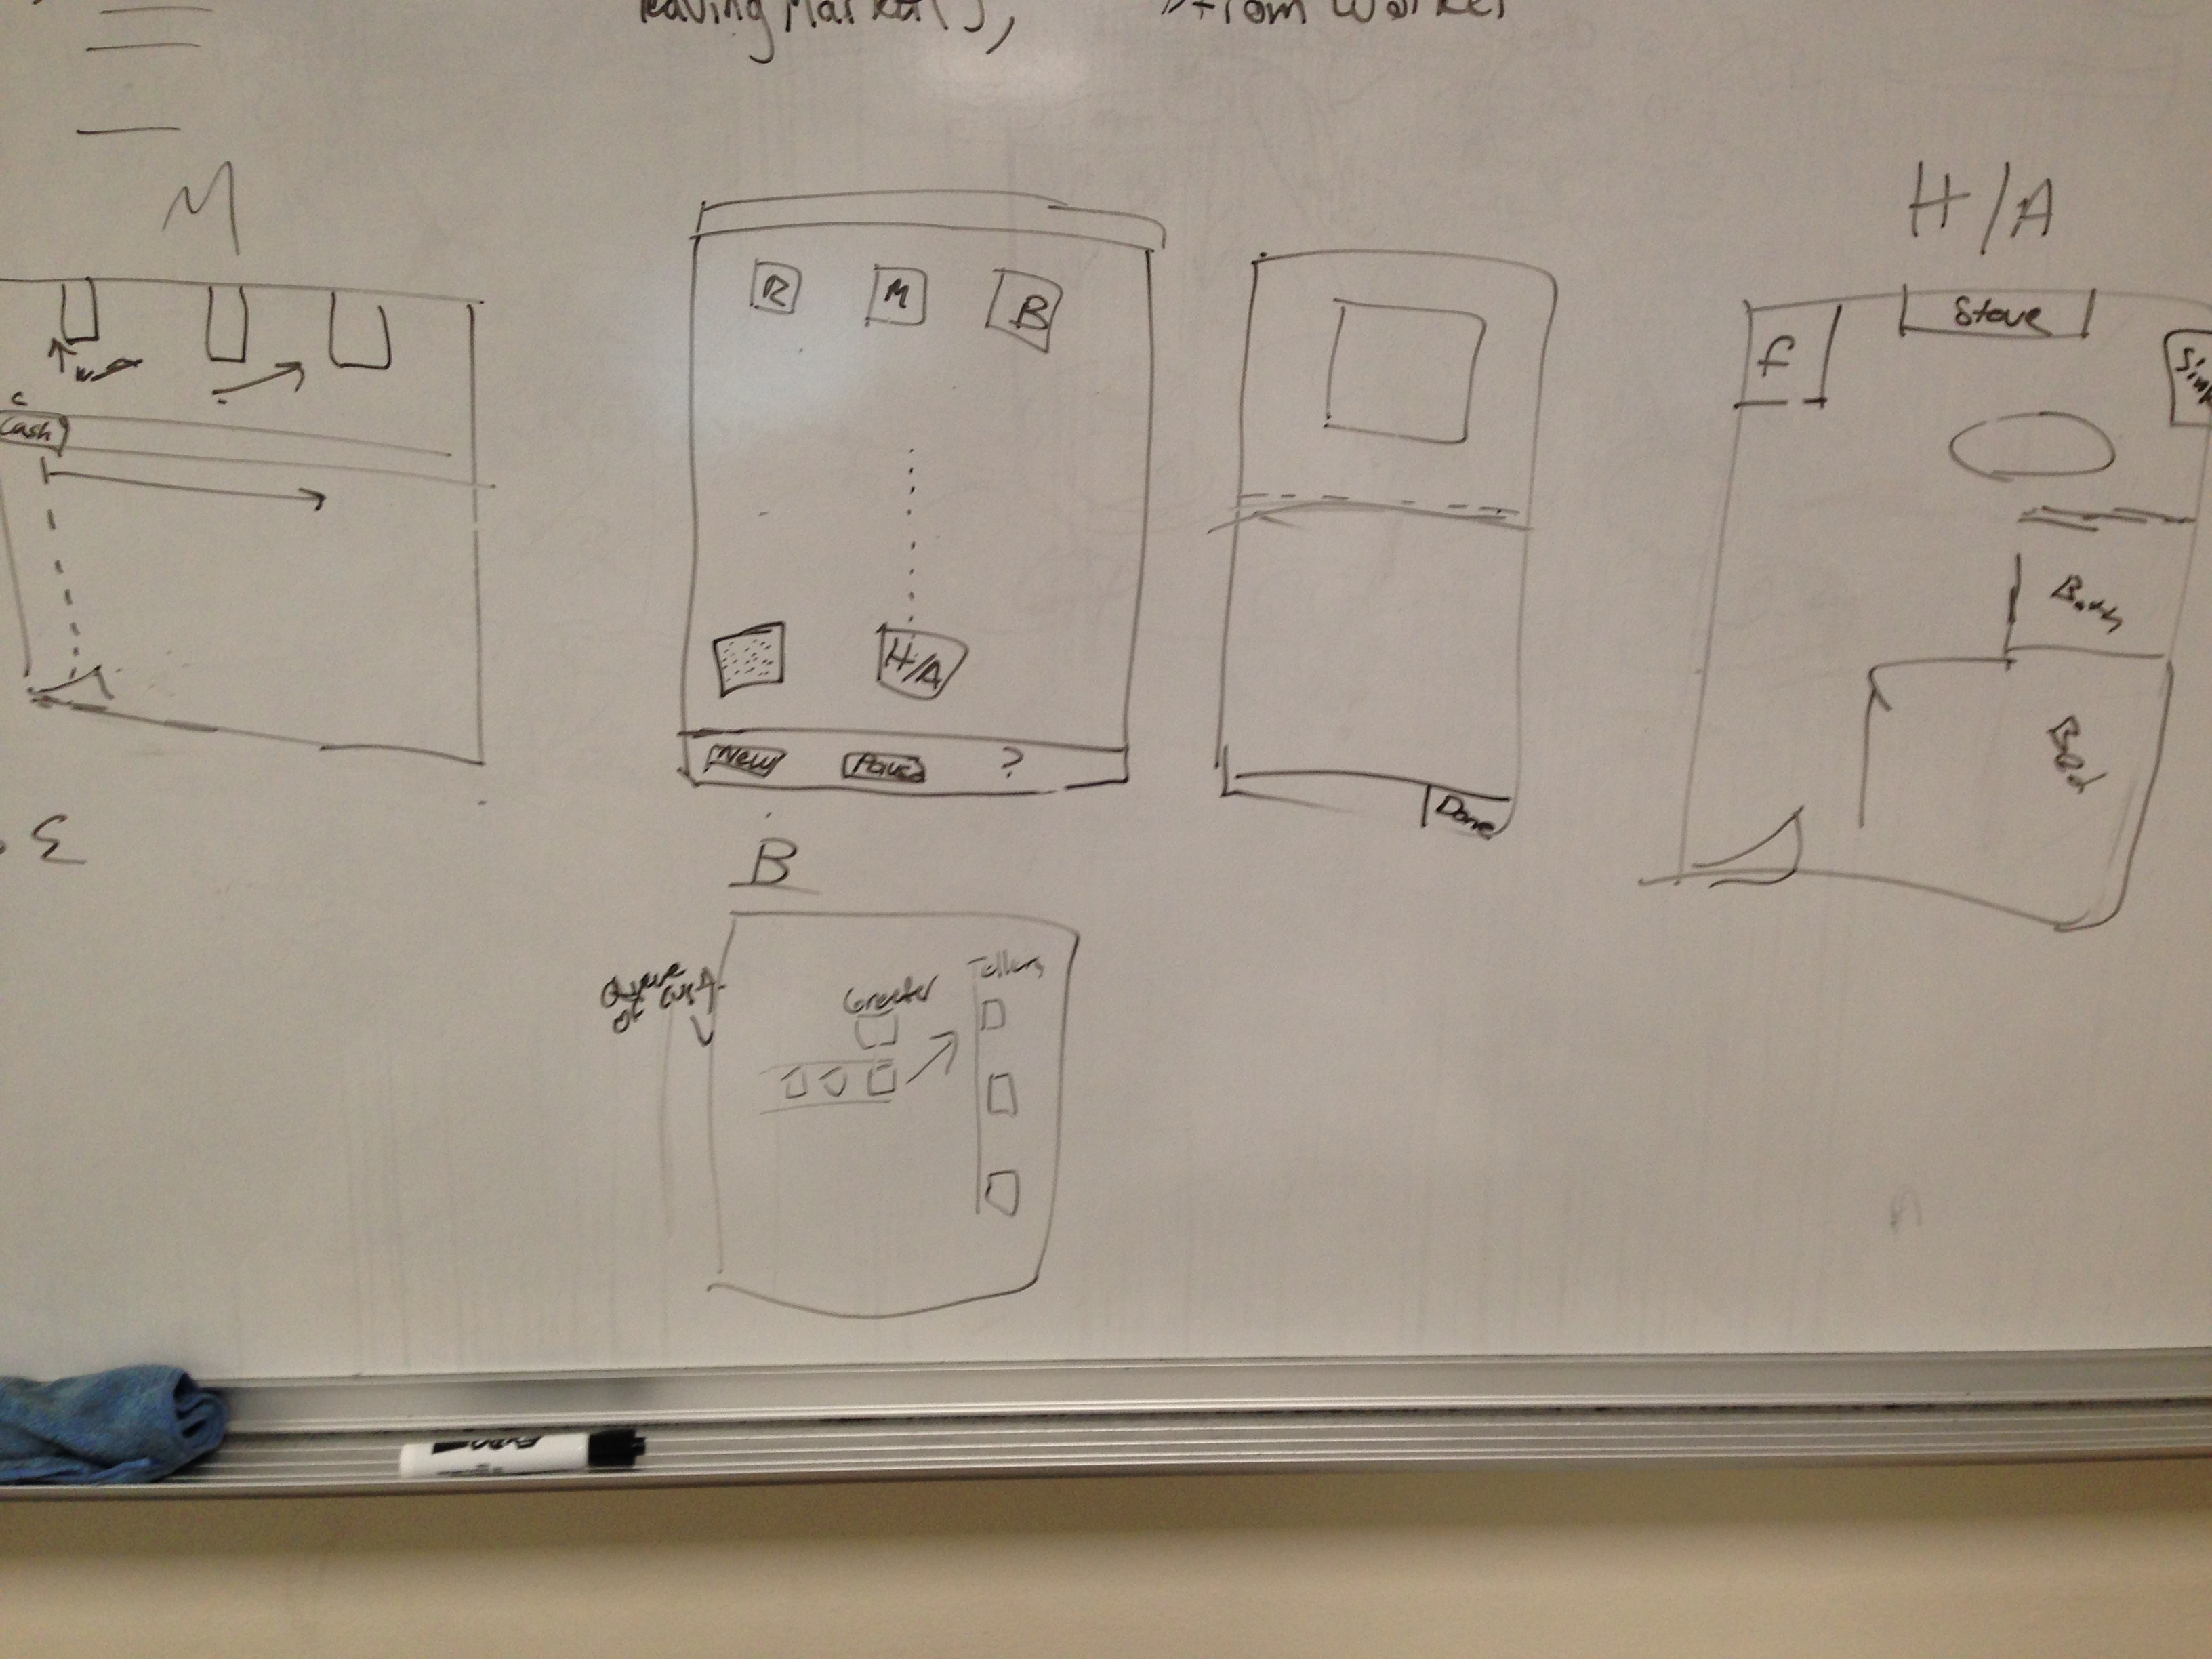 leavingMarket();
//from worker
M
c
Cash
R
M
B
H/A
New
Pause
?
Done
H/A
f
Stove
Sink
Bath
Bed
B
Queue
of cust.
Greeter
Tellers
EXPO